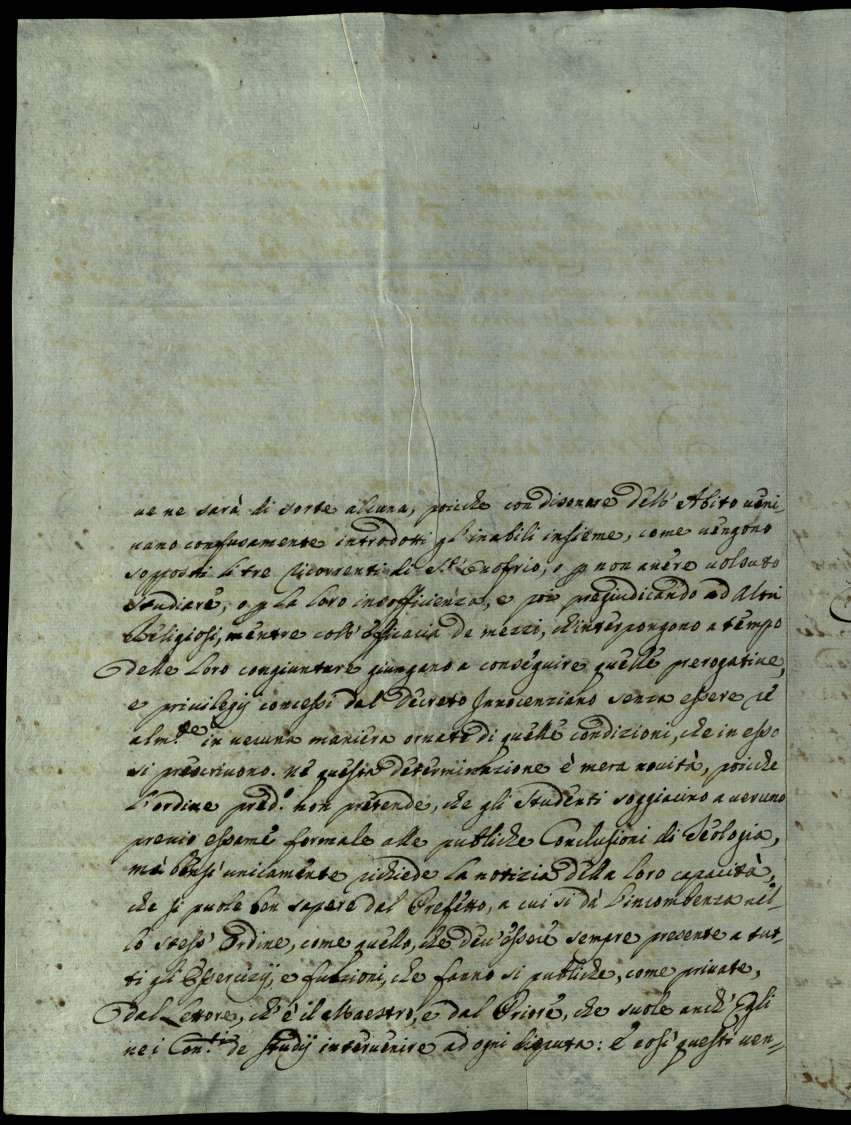 ve ne sarà di sorte alcuna, poiche con disonore dell'Abito veni-
vano confusamente introdotti gl'inabili insieme, come vengono
supposti li tre Ricorrenti di S.t Onofrio, o p non avere voluto
studiare, o p la loro insofficienza, e poi pregiudicando ad altri
Religiosi, mentre coll'efficacia de mezzi, ch'interpongono a tempo
delle loro congiunture giungano a conseguire quelle prerogative,
e privilegij concessi dal Decreto Innocenziano senza essere re-
alm.te in veruna maniera ornate di quelle condizioni, che in esso
si prescrivono. Nè questa determinazione è mera novità, poiche
l'ordine pred.o non pretende, che gli Studenti soggiacino a veruno
previo essame formale alle publiche Conclusioni di Teologia,
mà bensì unicamente richiede la notizia della loro capacità,
che si puole ben sapere dal Prefetto, a cui si dà l'incombenza nel-
lo stess'Ordine, come quello, che dev'essere sempre presente a tut-
ti gli Essercizij, e funzioni, che fanno si publiche, come private,
dal Lettore, ch'è il Maestro, e dal Priore, che suole anch'Egli
nei Con.ti de Studij intervenire ad ogni disputa: E così questi ven-